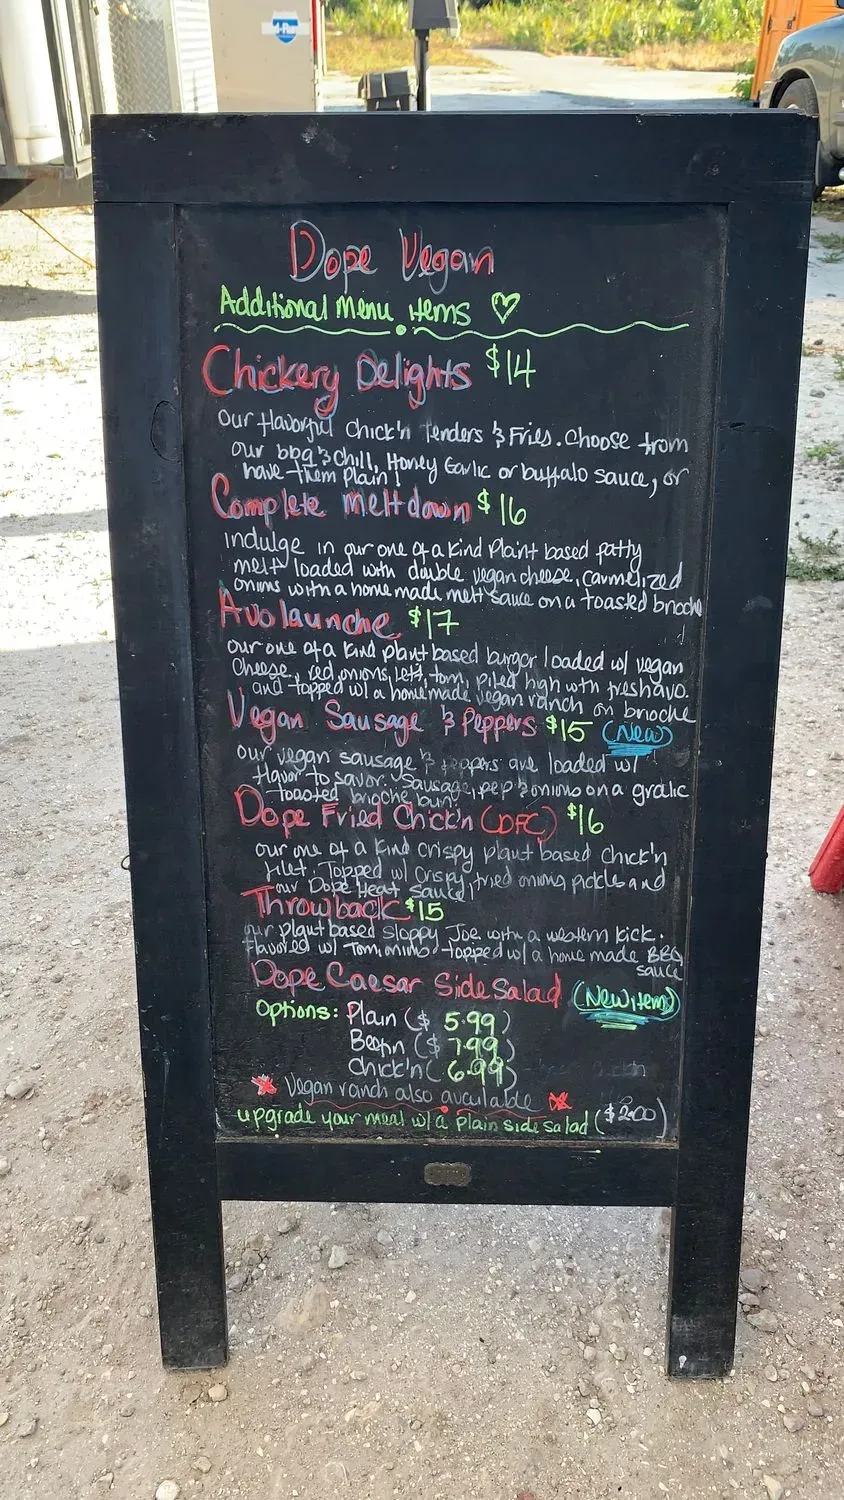 Dope Vegan
Additional Menu items
Chickery Delights $14
Our flavorful Chick'n Tenders & Fries. Choose from
our bbq & chill, Honey Garlic or buffalo sauce, or
have them Plain!
Complete Meltdown $16
indulge in our one of a kind Plant based patty
melt loaded with double vegan cheese, carmelized
onins with a home made melt sauce on a toasted brioche
Avolaunche $17
our one of a kind plant based burger loaded w/ vegan
cheese, red onions, lett, tom, piled high wth fresh avo.
and topped w/ a homemade vegan ranch on brioche
Vegan Sausage & Peppers $15 (New)
our vegan sausage & peppers are loaded w/
flavor to savor. Sausage, pep & onins on a gralic
toasted brioche bun!
Dope Fried Chick'n (DFC) $16
our one of a kind crispy plant based chick'n
filet. Topped w/ crispy fried onins, pickles and
our Dope Heat sauce!
Throwback $15
our plant based sloppy Joe with a western kick.
Flavored w/ Tom, onins topped w/ a home made BBQ
sauce
Dope Caesar Side Salad (New item)
Options: Plain ($ 5.99)
($ 7.99)
Chick'n (6.99)
Vegan ranch also available
upgrade your meal w/ a plain side salad ($2.00)